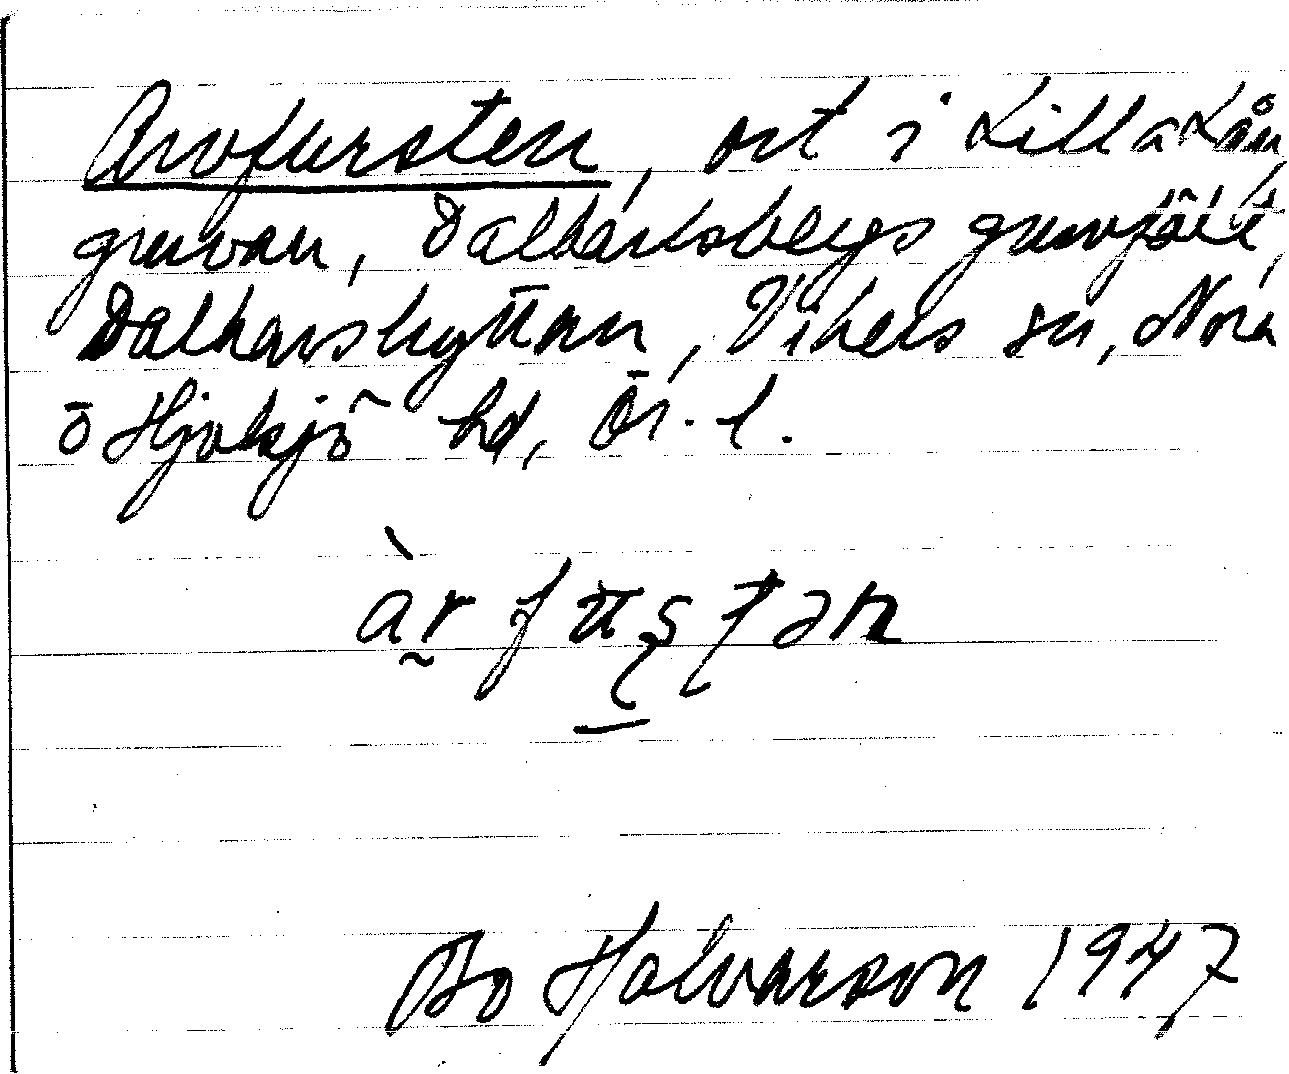 Arvfursten, ort i Lilla Lån
gruvan, Dalkarlsbergs gruvfält,
Dalkarlshyttan, Vikers sn, Nora
o Hjulsjö hd, Ör. l.
Bo Halvarson 1947